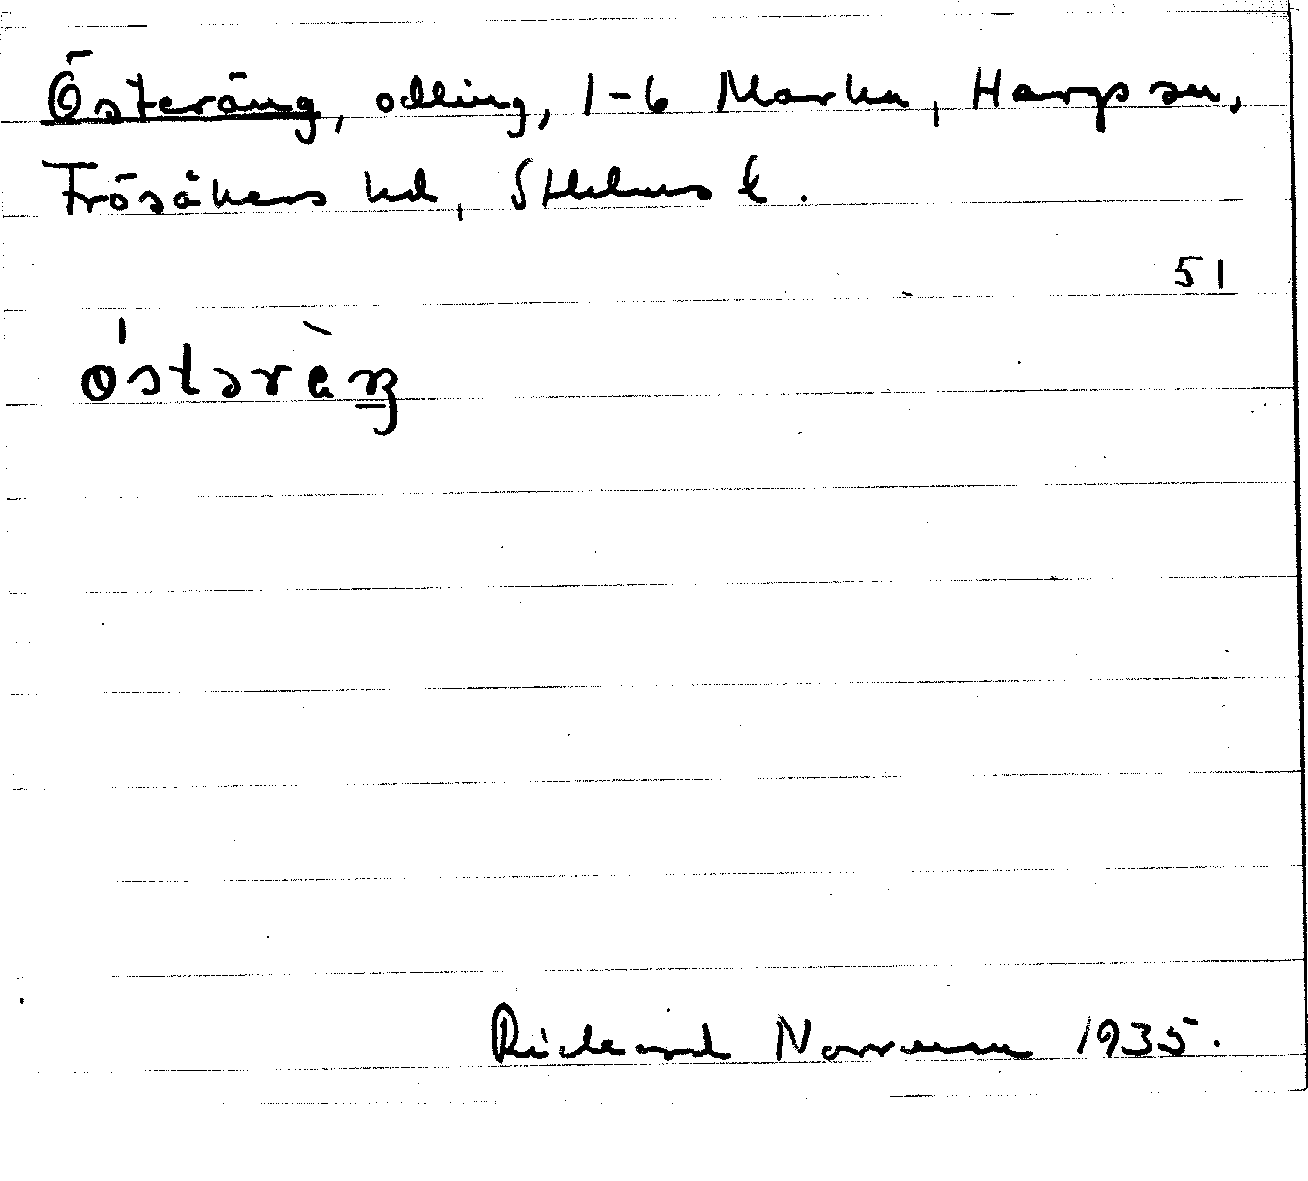 Österäng, odling, 1-6 Marka, Hargs sn,
Frösåkers hd, Sthlms l.
51
östəràŋ
Rickard Norreman 1935.